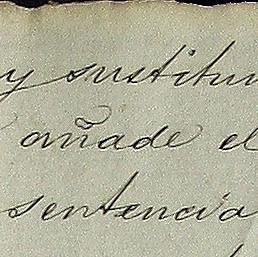 y sustitu
añade el
sentencia